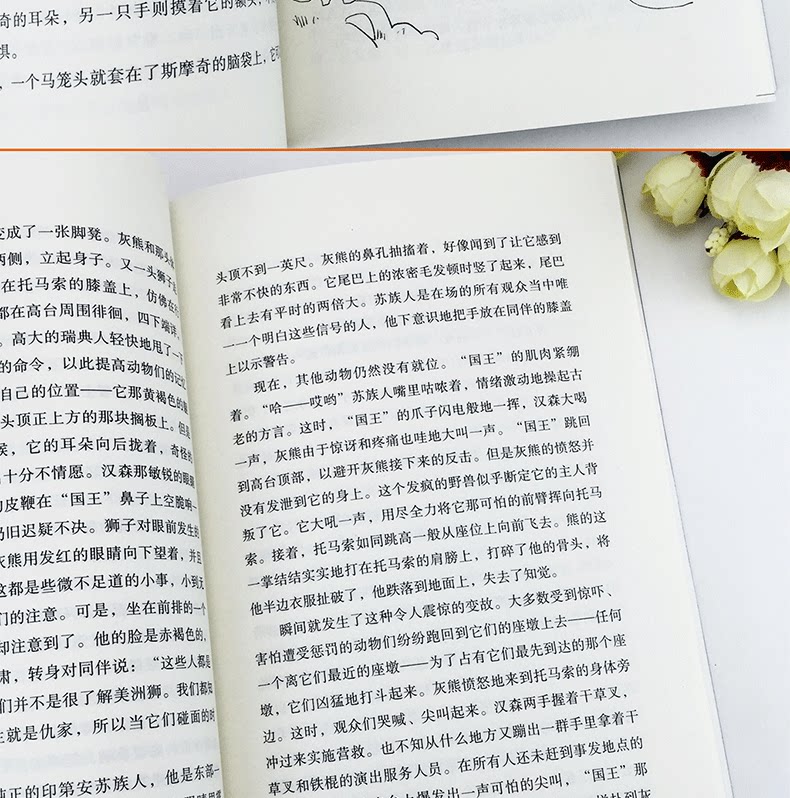 奇的耳朵，另一只手则摸着它的额头，
惧。
，一个马笼头就套在了斯摩奇的脑袋上，它
变成了一张脚凳。灰熊和那头
两侧，立起身子。又一头狮子
在托马索的膝盖上，仿佛在
都在高台周围徘徊，四下端详
。高大的瑞典人轻快地甩了一下
的命令，以此提高动物们的记忆
自己的位置——它那黄褐色的
头顶正上方的那块搁板上。但是
侯，它的耳朵向后拢着，奇怪的
十分不情愿。汉森那敏锐的眼
皮鞭在“国王”鼻子上空脆响一
仍旧迟疑不决。狮子对眼前发生的
灰熊用发红的眼睛向下望着，并且
这都是些微不足道的小事，小到无
们的注意。可是，坐在前排的一个
却注意到了。他的脸是赤褐色的，
肃，转身对同伴说：“这些人都是
们并不是很了解美洲狮。我们都知
生就是仇家，所以当它们碰面的时
纯正的印第安苏族人，他是东部一
头顶不到一英尺。灰熊的鼻孔抽搐着，好像闻到了让它感到
非常不快的东西。它尾巴上的浓密毛发顿时竖了起来，尾巴
看上去有平时的两倍大。苏族人是在场的所有观众当中唯
一一个明白这些信号的人，他下意识地把手放在同伴的膝盖
上以示警告。
现在，其他动物仍然没有就位。“国王”的肌肉紧绷
着。“哈——哎哟”苏族人嘴里咕哝着，情绪激动地操起古
老的方言。这时，“国王”的爪子闪电般地一挥，汉森大喝
一声，灰熊由于惊讶和疼痛也哇地大叫一声。“国王”跳回
到高台顶部，以避开灰熊接下来的反击。但是灰熊的愤怒并
没有发泄到它的身上。这个发疯的野兽似乎断定它的主人背
叛了它。它大吼一声，用尽全力将它那可怕的前臂挥向托马
索。接着，托马索如同跳高一般从座位上向前飞去。熊的这
一掌结结实实地打在托马索的肩膀上，打碎了他的骨头，将
他半边衣服扯破了，他跌落到地面上，失去了知觉。
瞬间就发生了这种令人震惊的变故。大多数受到惊吓、
害怕遭受惩罚的动物们纷纷跑回到它们的座墩上去——任何
一个离它们最近的座墩——为了占有它们最先到达的那个座
墩，它们凶猛地打斗起来。灰熊愤怒地来到托马索的身体旁
边。这时，观众们哭喊、尖叫起来。汉森两手握着干草叉，
冲过来实施营救。也不知从什么地方又蹦出一群手里拿着干
草叉和铁棍的演出服务人员。在所有人还未赶到事发地点的
台上爆发出一声可怕的尖叫，“国王”那